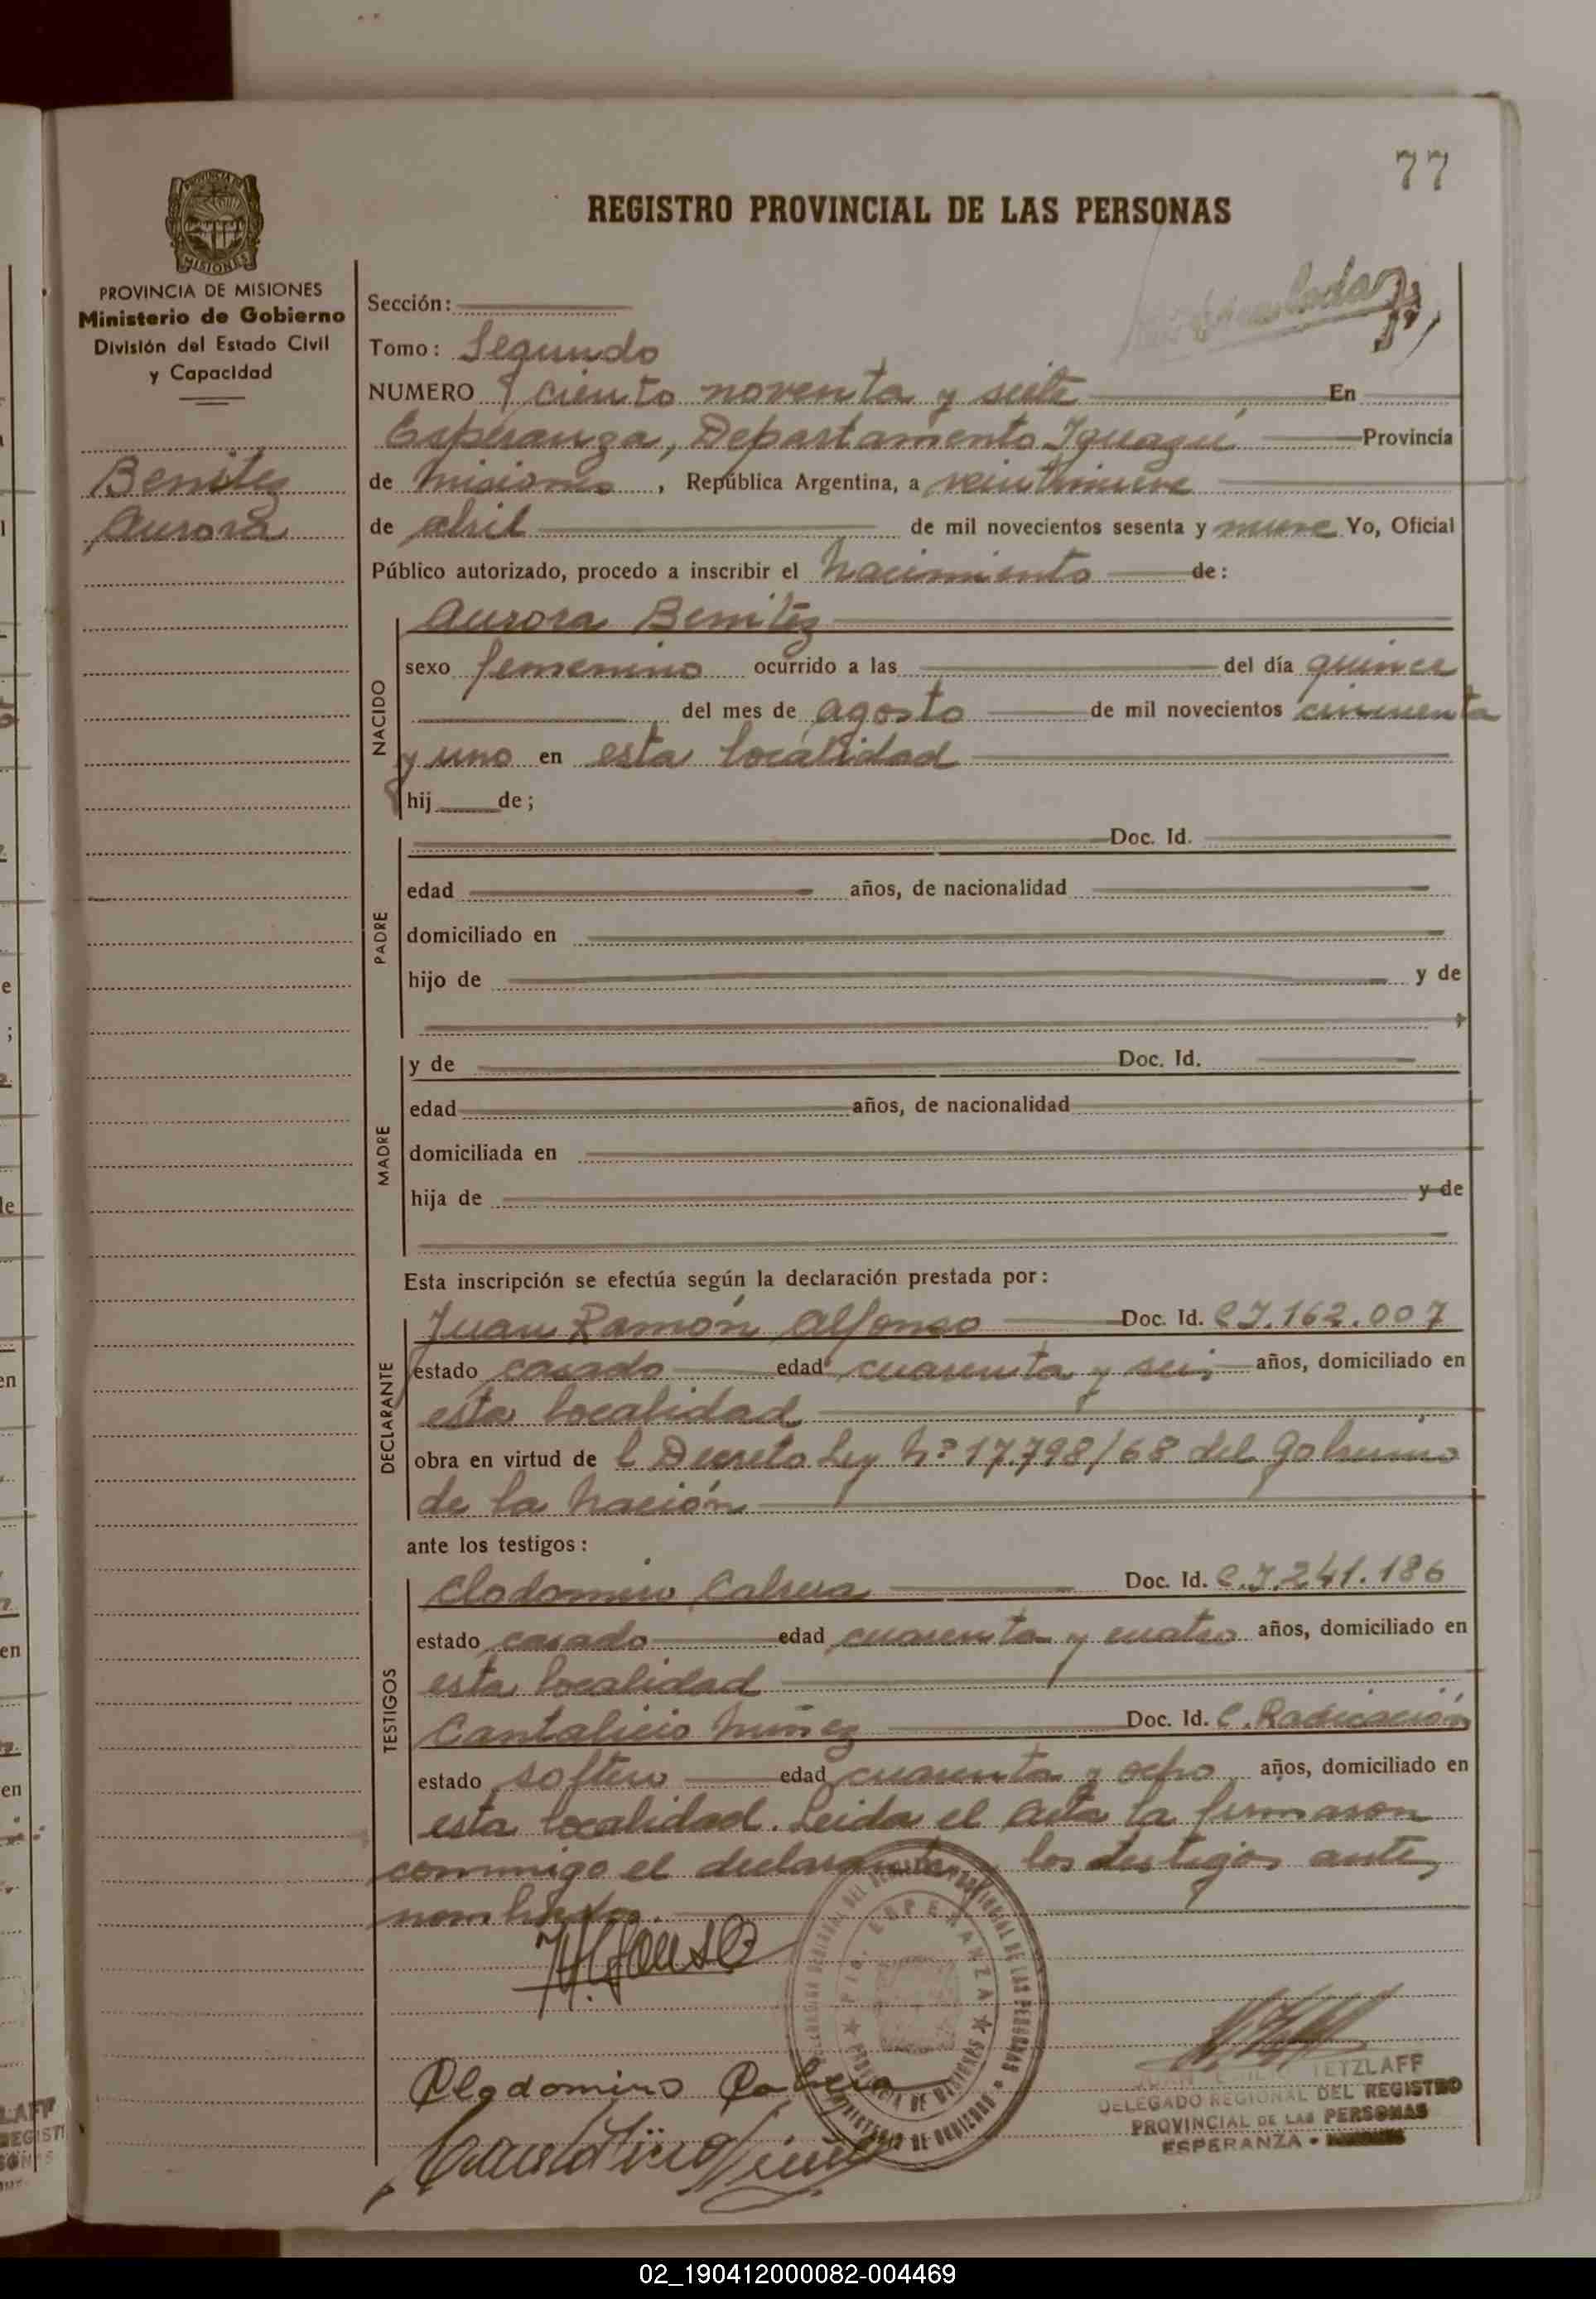 77
REGISTRO PROVINCIAL DE LAS PERSONAS
PROVINCIA DE MISIONES
Ministerio de Gobierno
División del Estado Civil
y Capacidad
Benitez
Aurora
Sección:
Tomo: Segundo
NUMERO ciento noventa y siete En
Esperanza, Departamento Iguazú Provincia
de Misiones, República Argentina, a veintinueve
de abril de mil novecientos sesenta y nueve Yo, Oficial
Público autorizado, procedo a inscribir el Nacimiento de:
NACIDO
Aurora Benitez
sexo femenino ocurrido a las del día quince
del mes de agosto de mil novecientos cincuenta
y uno en esta localidad
hij de;
PADRE
Doc. Id.
edad años, de nacionalidad
domiciliado en
hijo de y de
MADRE
y de Doc. Id.
edad años, de nacionalidad
domiciliada en
hija de y de
Esta inscripción se efectúa según la declaración prestada por:
DECLARANTE
Juan Ramón Alfonso Doc. Id. C.I. 162.007
estado casado edad cuarenta y seis años, domiciliado en
esta localidad
obra en virtud de l Decreto Ley Nº 17.798/68 del Gobierno
de la Nación
ante los testigos:
TESTIGOS
Clodomiro Cabrera Doc. Id. C.I. 241.186
estado casado edad cuarenta y cuatro años, domiciliado en
esta localidad
Cantalicio Núñez Doc. Id. C. Radicación
estado soltero edad cuarenta y ocho años, domiciliado en
esta localidad. Leida el acta la firmaron
conmigo el declarante y los testigos ante
nombrados.
Alfonso
Clodomiro Cabrera
ESPERANZA
PROVINCIA DE MISIONES
MINISTERIO DE GOBIERNO
TETZLAFF
DELEGADO REGIONAL DEL REGISTRO
PROVINCIAL DE LAS PERSONAS
ESPERANZA -
02_190412000082-004469